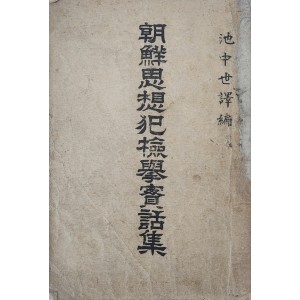 池中世譯編
朝鮮思想犯檢擧實話集